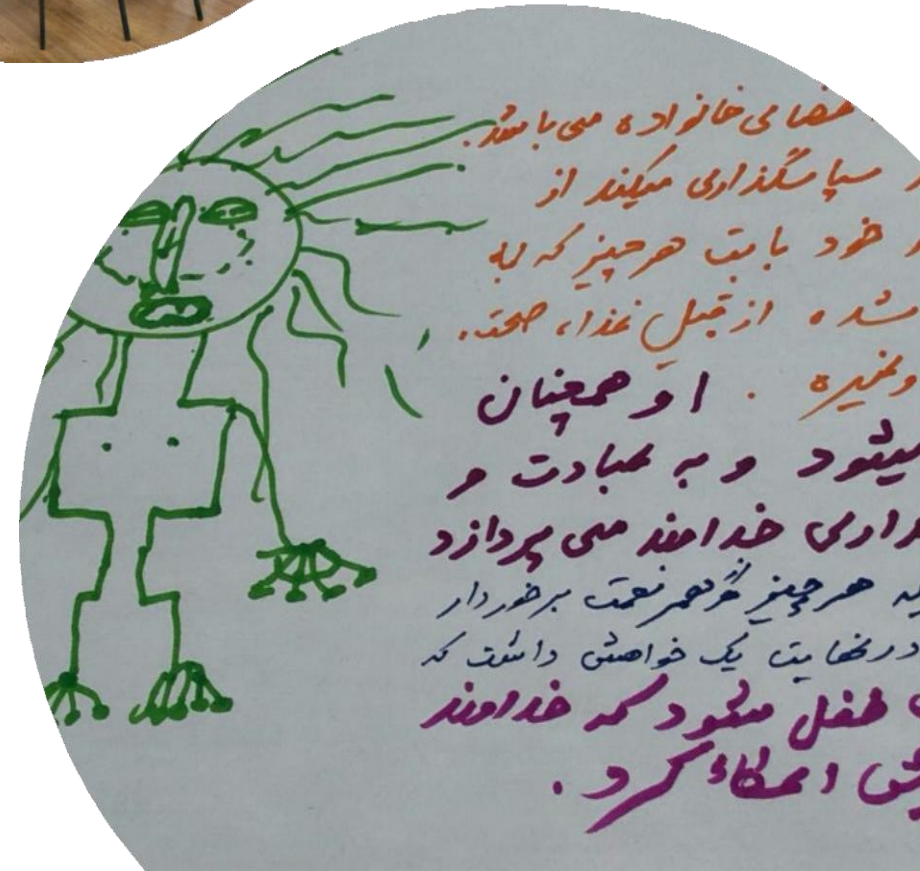 اعضای خانواده می باشد.
سپاسگذاری میکند از
خود بابت هر چیز که به
شده از قبیل غذا، صحت.
وغیره . او همچنان
میشود و به عبادت و
خداوند می پردازد
هر چیز نعمت برخوردار
در نهایت یک خواهش داشت که
طفل میشود که خداوند
کرد .